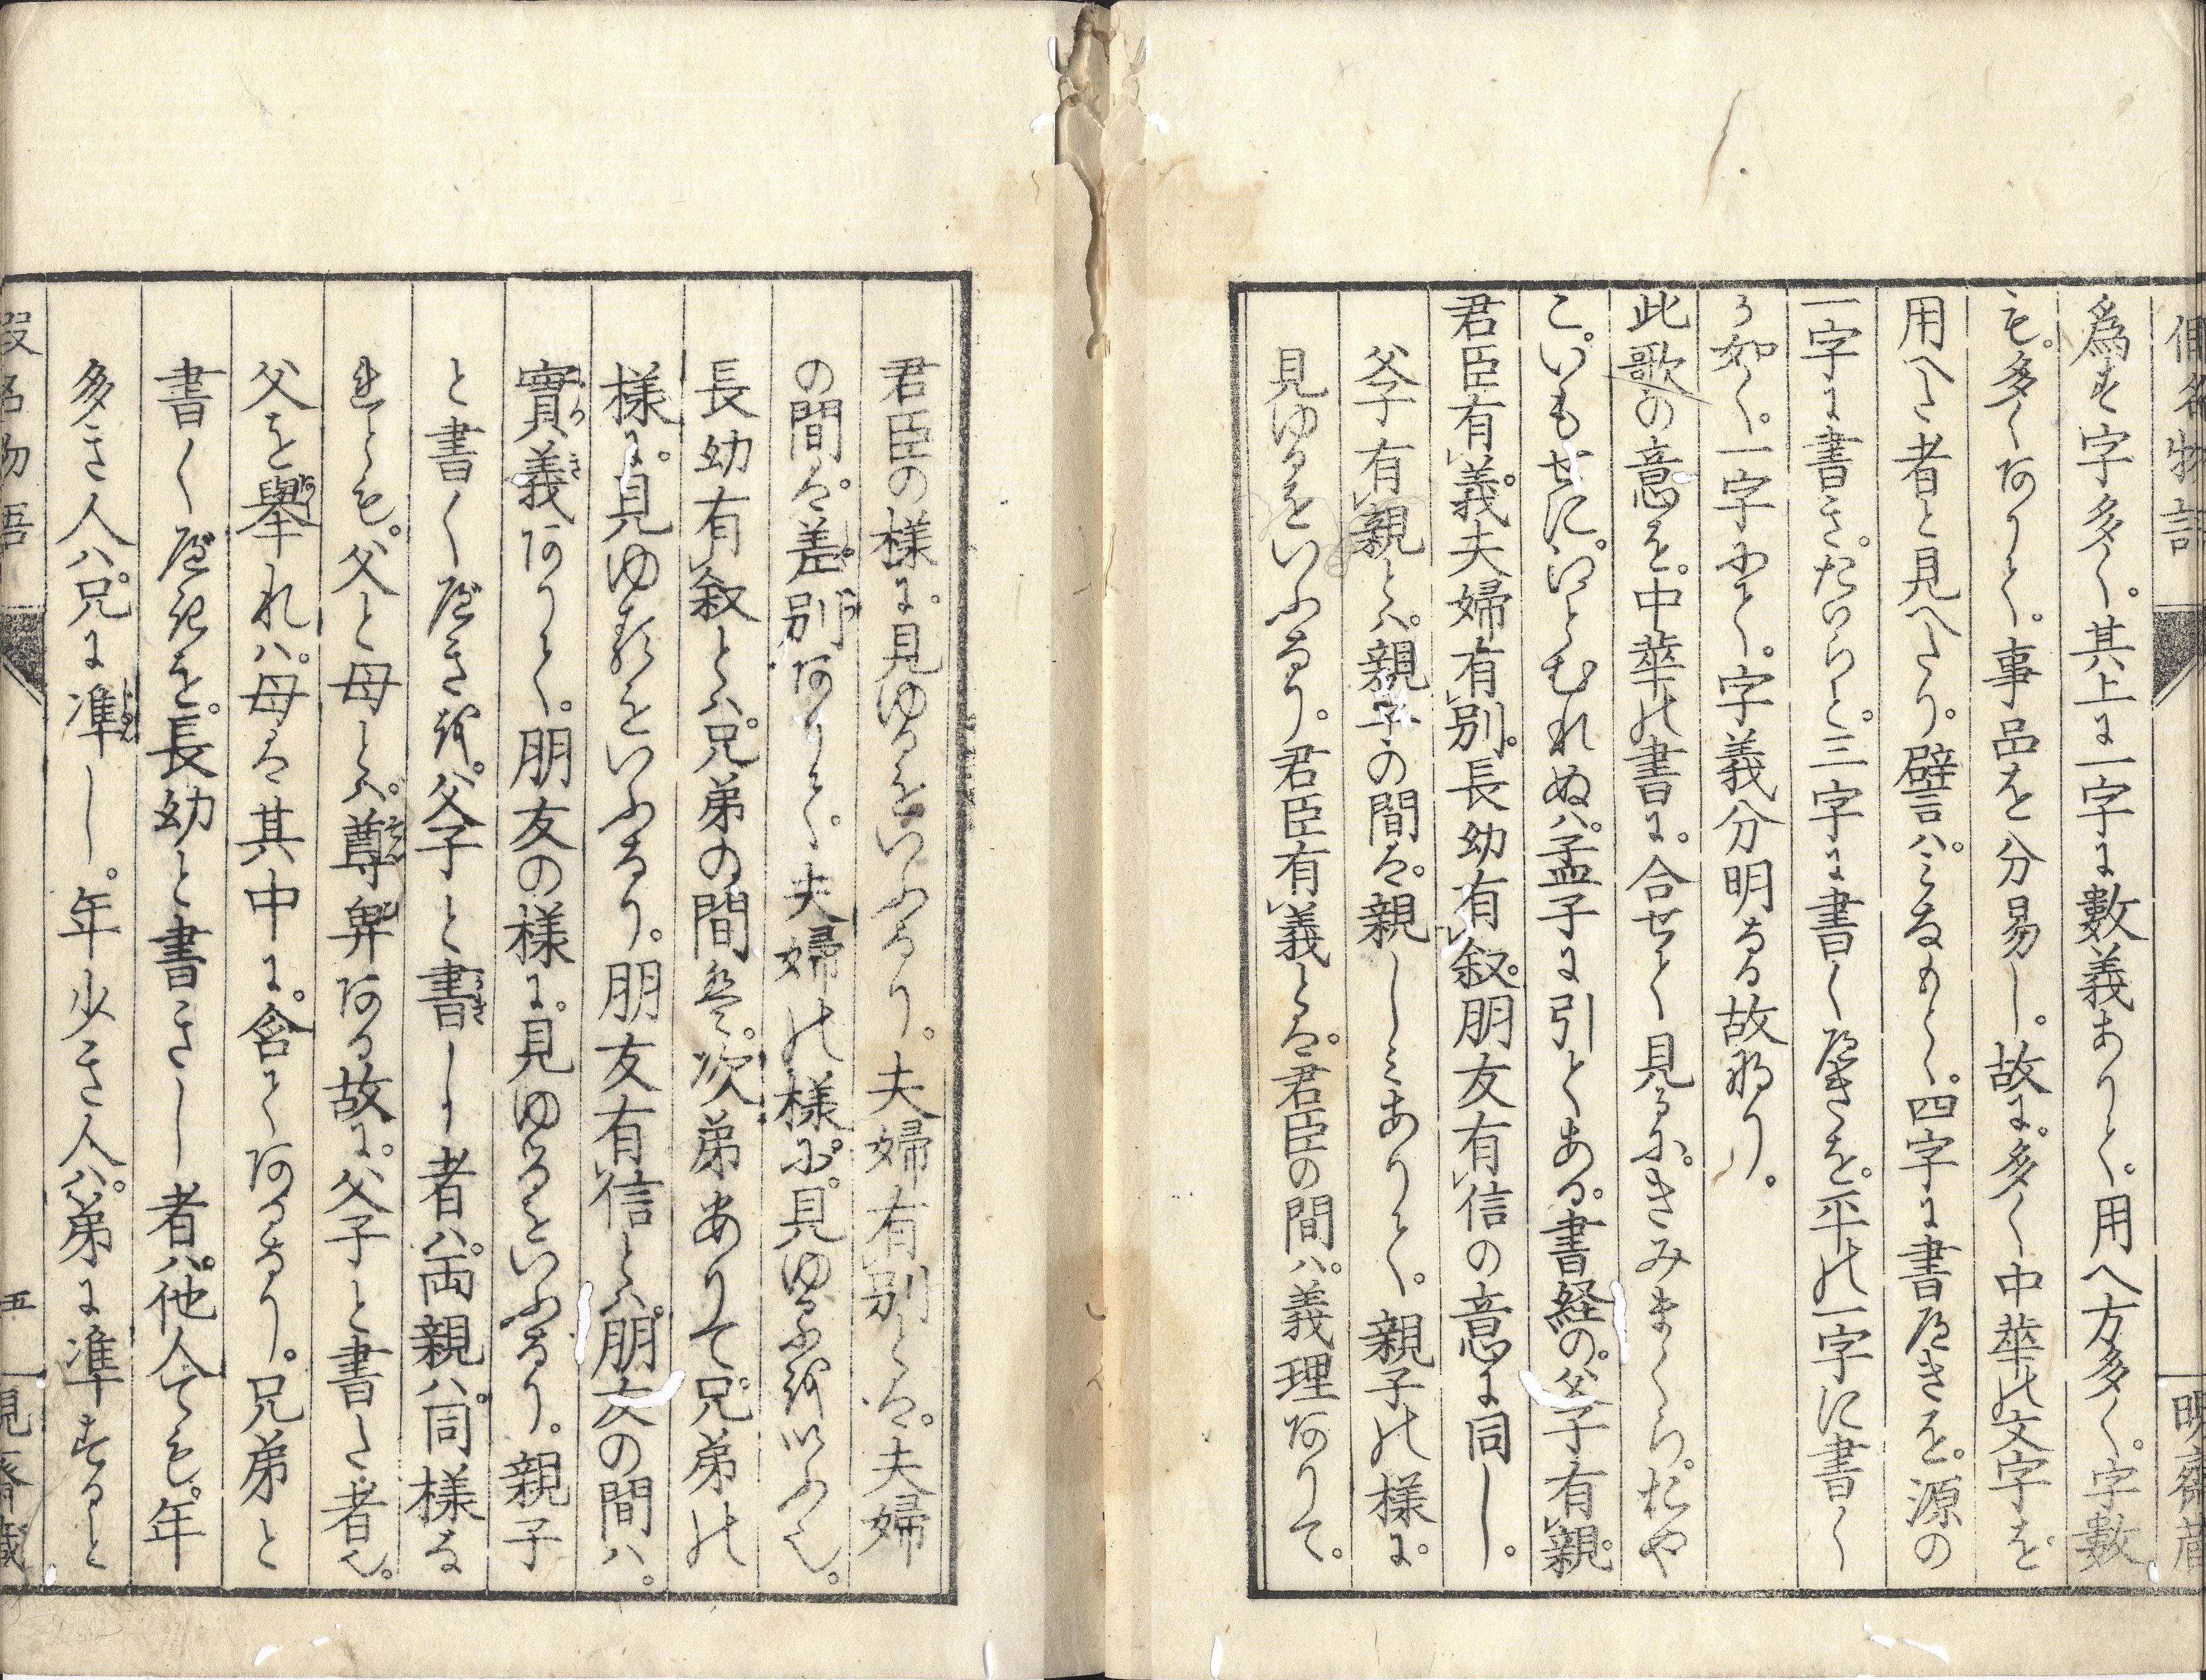 為す字多く。其上に一字に數義ありて。用へ方多く。字數
も。多くありて。事品を分易し。故に。多く中華の文字を
用へし者と見へたり。譬ハ。みなもとゝ。四字に書べきを。源の
一字に書き。たいらと。三字に書くべきを。平の一字に書く
か如く。一字にて。字義分明なる故なり。
此歌の意を。中華の書に。合せて見るに。きみまくら。おや
こ。いもせに。いとむれぬハ。孟子に引てある。書経の。父子有親。
君臣有義。夫婦有別。長幼有叙。朋友有信の意に同し。
父子有親とハ。親子の間は。親しみありて。親子の様に。
見ゆるをいふなり。君臣有義とは。君臣の間ハ。義理ありて。
君臣の様に。見ゆるをいふなり。夫婦有別とは。夫婦
の間は。差別ありて。夫婦の様に。見ゆるを以ふ也。
長幼有叙とハ。兄弟の間も。次弟ありて兄弟の
様に。見ゆるをいふなり。朋友有信とハ。朋友の間ハ。
實義ありて。朋友の様に。見ゆるをいふなり。親子
と書くべきを。父子と書しハ者ハ。両親ハ。同様な
れとも。父と母とハ。尊卑ある故に。父子と書し者也。
父を舉れハ。母は其中に。含てあるなり。兄弟と
書くべきを。長幼と書きし者ハ。他人ても。年
多き人ハ。兄に准し。年少き人ハ。弟に準すると
假名物語
五